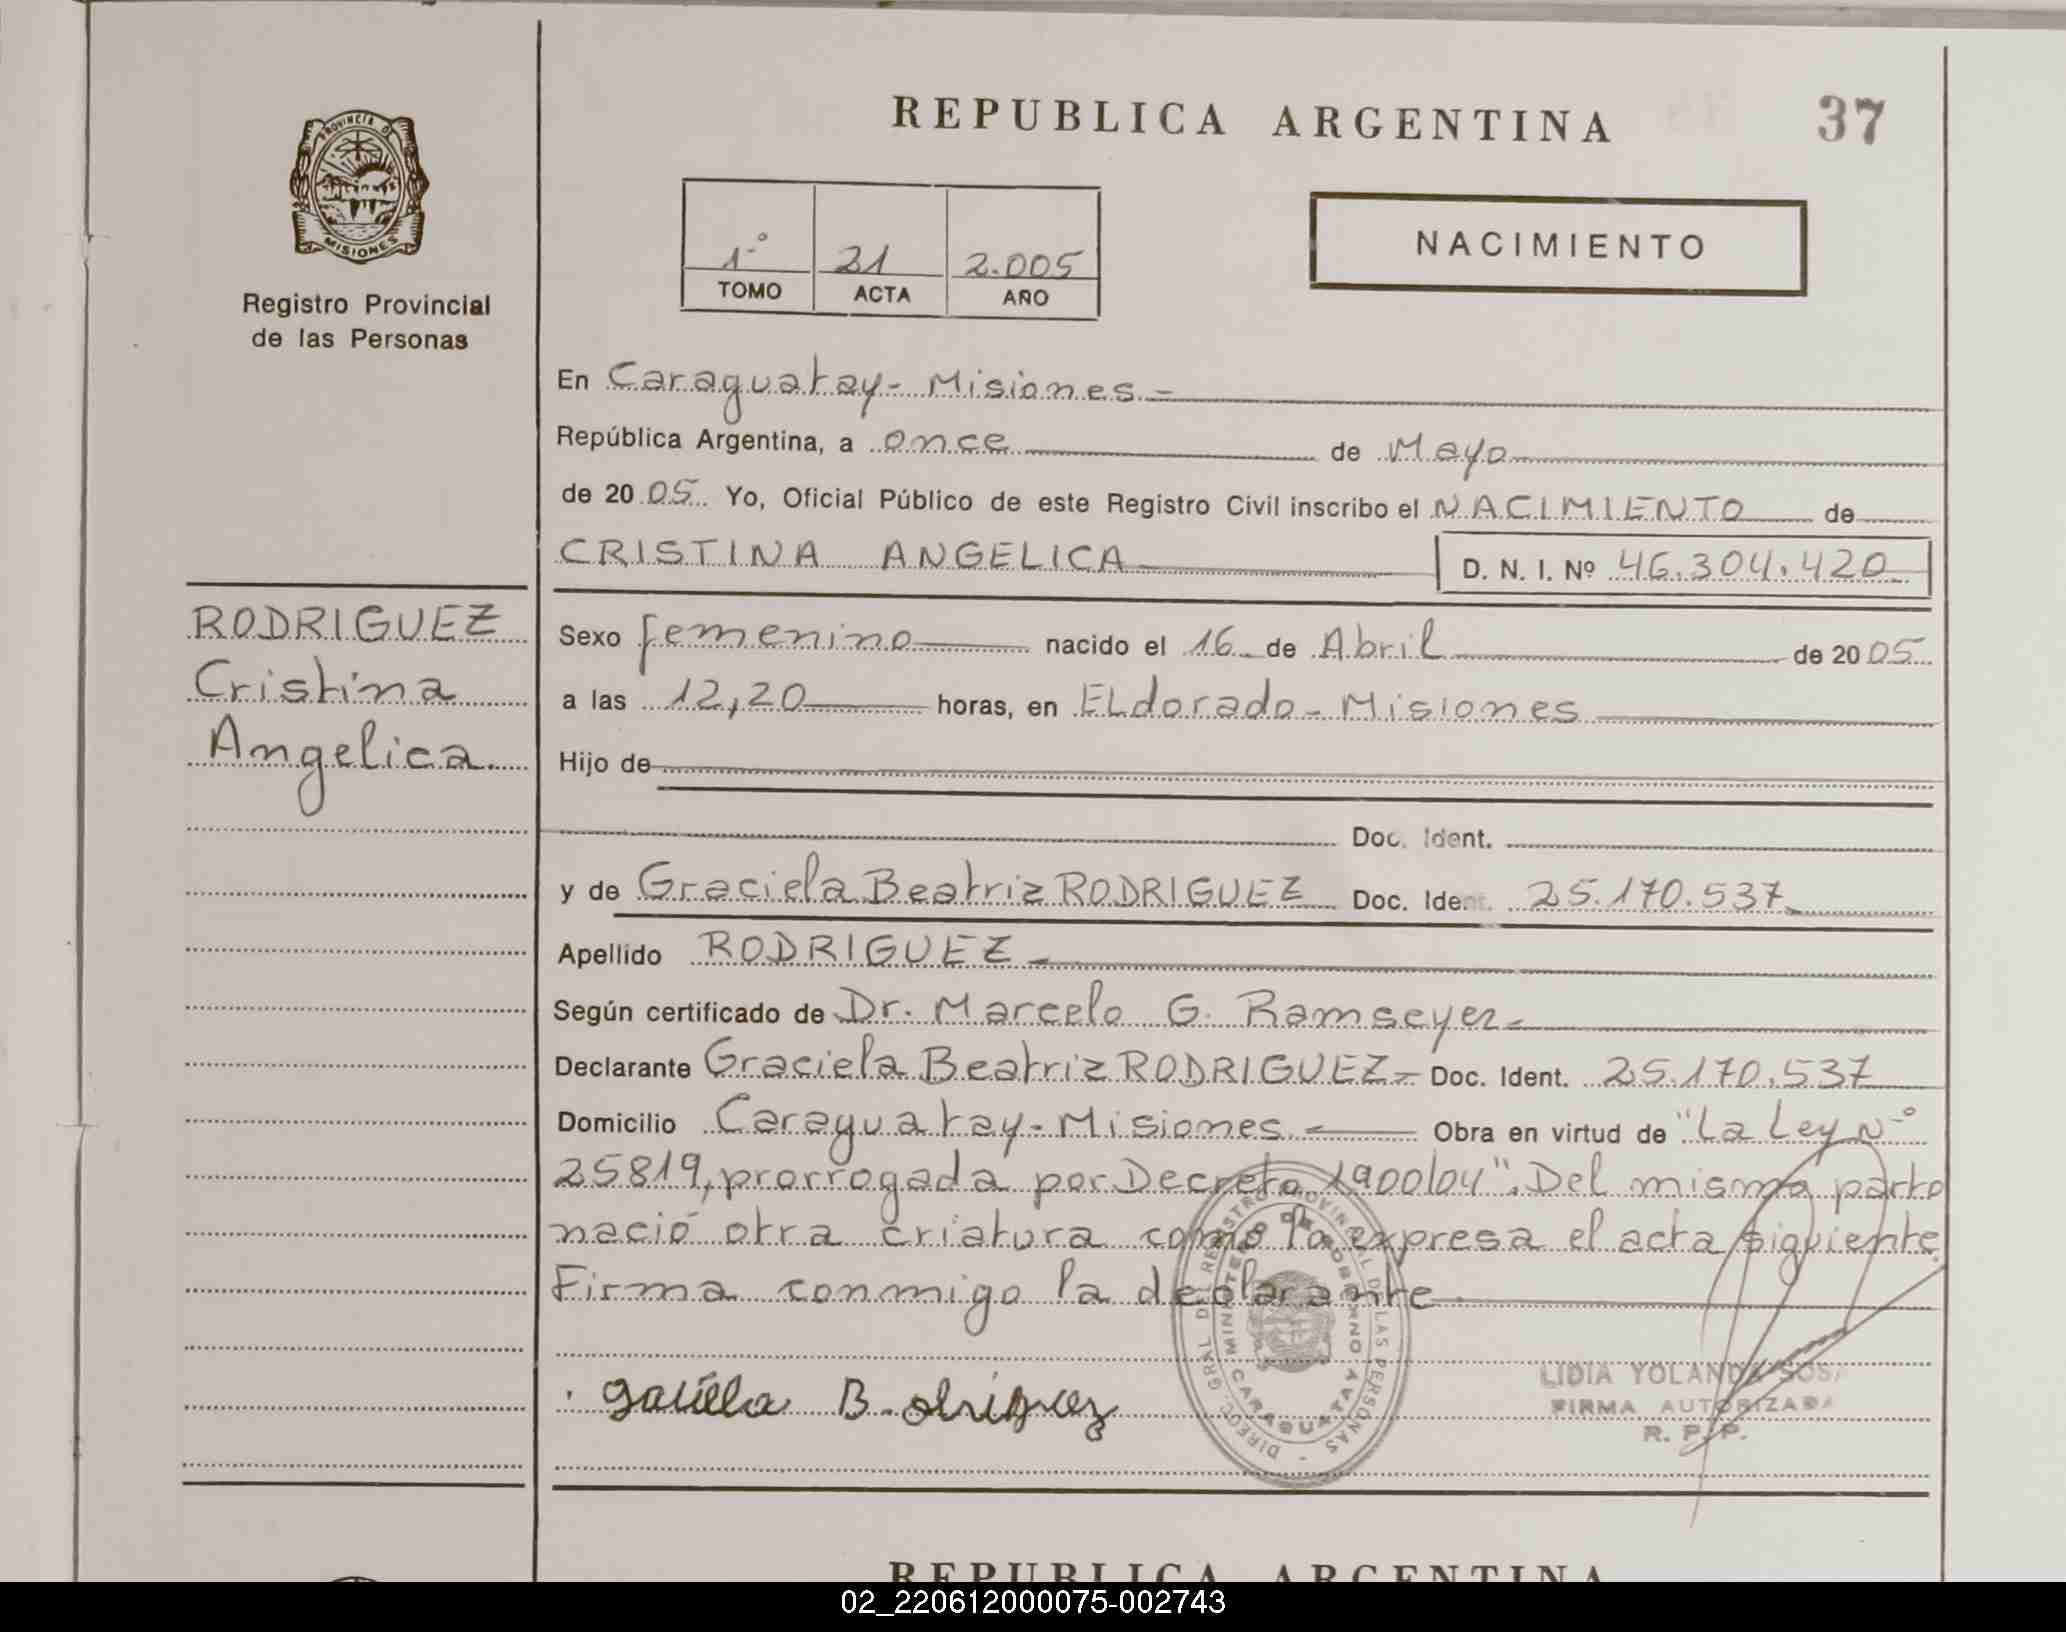 REPUBLICA ARGENTINA
37
PROVINCIA D
MISIONES
Registro Provincial
de las Personas
1º 21 2.005
TOMO ACTA AÑO
NACIMIENTO
En Caraguatay - Misiones -
República Argentina, a once de Mayo
de 20 05 Yo, Oficial Público de este Registro Civil inscribo el NACIMIENTO de
CRISTINA ANGELICA D. N. I. Nº 46.304.420
RODRIGUEZ
Cristina
Angelica.
Sexo femenino nacido el 16 de Abril de 20 05
a las 12,20 horas, en ELdorado - Misiones
Hijo de
Doc. Ident.
y de Graciela Beatriz RODRIGUEZ Doc. Ident. 25.170.537
Apellido RODRIGUEZ -
Según certificado de Dr. Marcelo G. Ramseyer -
Declarante Graciela Beatriz RODRIGUEZ - Doc. Ident. 25.170.537
Domicilio Caraguatay - Misiones. - Obra en virtud de "La Ley Nº
25819, prorrogada por Decreto 1900/04". Del mismo parto
nació otra criatura como lo expresa el acta siguiente.
Firma conmigo la declarante.
DIREC. GRAL DEL REGISTRO PROVINCIAL DE LAS PERSONAS
MINISTERIO DE GOBIERNO
CARAGUATAY
LIDIA YOLANDA SOSA
FIRMA AUTORIZADA
R. P. P.
REPUBLICA ARGENTINA
02_220612000075-002743